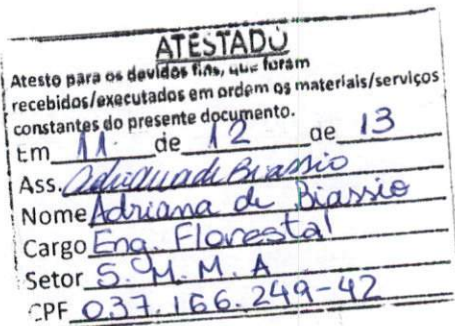 ATESTADO
Atesto para os devidos fins, que foram
recebidos/executados em ordem os materiais/serviços
constantes do presente documento.
Em 11 de 12 de 13
Ass. Adriana de Biassio
Nome Adriana de Biassio
Cargo Eng. Florestal
Setor S.M.M.A
CPF 037.166.249-42